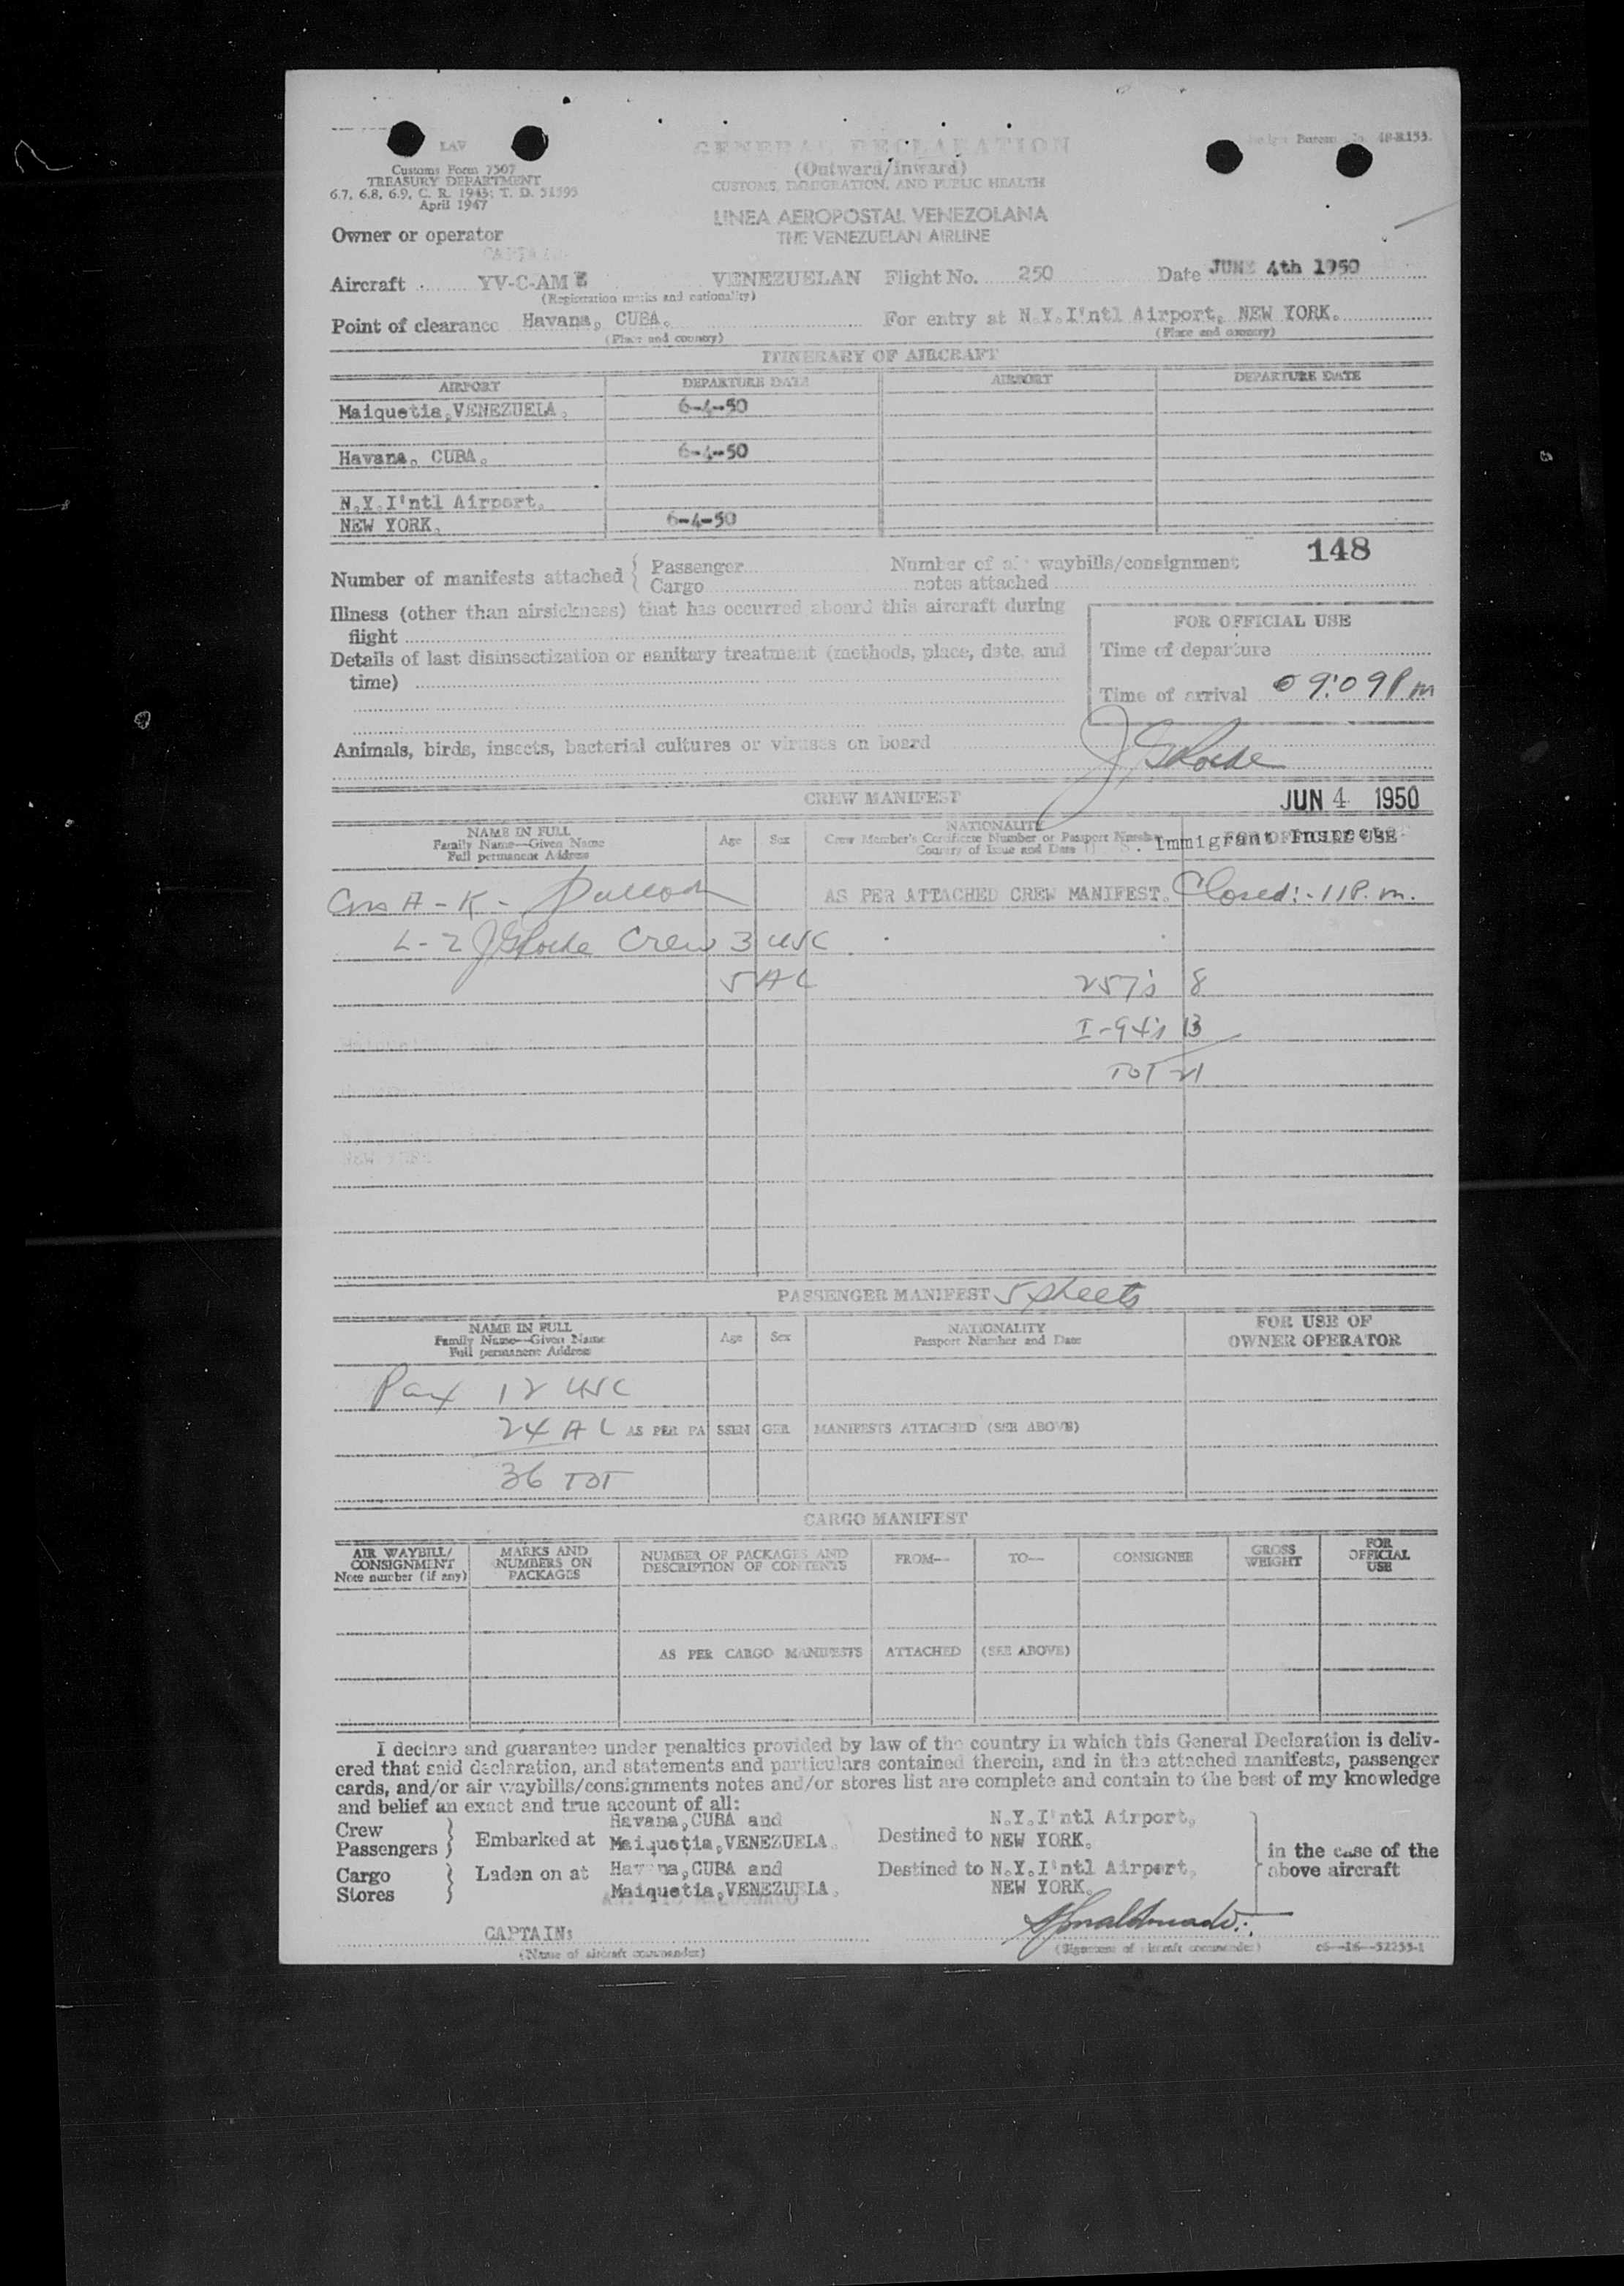 LAV
GENERAL DECLARATION
(Outward/Inward)
CUSTOMS, IMMIGRATION, AND PUBLIC HEALTH
Customs Form 7507
TREASURY DEPARTMENT
6.7, 6.8, 6.9, C. R. 1943; T. D. 51595
April 1947
LINEA AEROPOSTAL VENEZOLANA
THE VENEZUELAN AIRLINE
Owner or operator
Aircraft YV-C-AME VENEZUELAN Flight No. 250 Date JUNE 4th 1950
(Registration marks and nationality)
Point of clearance Havana, CUBA. For entry at N.Y.I'ntl Airport, NEW YORK.
(Place and country) (Place and country)
ITINERARY OF AIRCRAFT
AIRPORT DEPARTURE DATE AIRPORT DEPARTURE DATE
Maiquetia,VENEZUELA. 6-4-50
Havana, CUBA. 6-4-50
N.Y.I'ntl Airport,
NEW YORK. 6-4-50
148
Number of manifests attached { Passenger
Cargo
Number of air waybills/consignment
notes attached
Illness (other than airsickness) that has occurred aboard this aircraft during
flight
Details of last disinsectization or sanitary treatment (methods, place, date, and
time)
FOR OFFICIAL USE
Time of departure
Time of arrival 09:09 Pm
Animals, birds, insects, bacterial cultures or viruses on board
CREW MANIFEST
JUN 4 1950
Immigrant Inspector
NAME IN FULL
Family Name—Given Name
Full permanent Address
Age Sex
NATIONALITY
Crew Member's Certificate Number or Passport Number
Country of Issue and Date
FOR OFFICIAL USE
AS PER ATTACHED CREW MANIFEST. Closed:-11P.m.
Crew 3 USC
5 AL 257's 8
I-94's 13
TOT 21
NEW YORK
PASSENGER MANIFEST 5 sheets
NAME IN FULL
Family Name—Given Name
Full permanent Address
Age Sex
NATIONALITY
Passport Number and Date
FOR USE OF
OWNER OPERATOR
Pax 12 USC
24 AL AS PER PASSENGER MANIFESTS ATTACHED (SEE ABOVE)
36 TOT
CARGO MANIFEST
AIR WAYBILL/
CONSIGNMENT
Note number (if any)
MARKS AND
NUMBERS ON
PACKAGES
NUMBER OF PACKAGES AND
DESCRIPTION OF CONTENTS
FROM— TO— CONSIGNEE
GROSS
WEIGHT
FOR
OFFICIAL
USE
AS PER CARGO MANIFESTS ATTACHED (SEE ABOVE)
I declare and guarantee under penalties provided by law of the country in which this General Declaration is deliv-
ered that said declaration, and statements and particulars contained therein, and in the attached manifests, passenger
cards, and/or air waybills/consignments notes and/or stores list are complete and contain to the best of my knowledge
and belief an exact and true account of all:
Crew
Passengers } Embarked at Havana,CUBA and
Maiquetia,VENEZUELA. Destined to N.Y.I'ntl Airport,
NEW YORK.
Cargo
Stores } Laden on at Havana,CUBA and
Maiquetia,VENEZUELA. Destined to N.Y.I'ntl Airport,
NEW YORK.
in the case of the
above aircraft
CAPTAIN:
(Name of aircraft commander) (Signature of aircraft commander) c6—16—52255-1